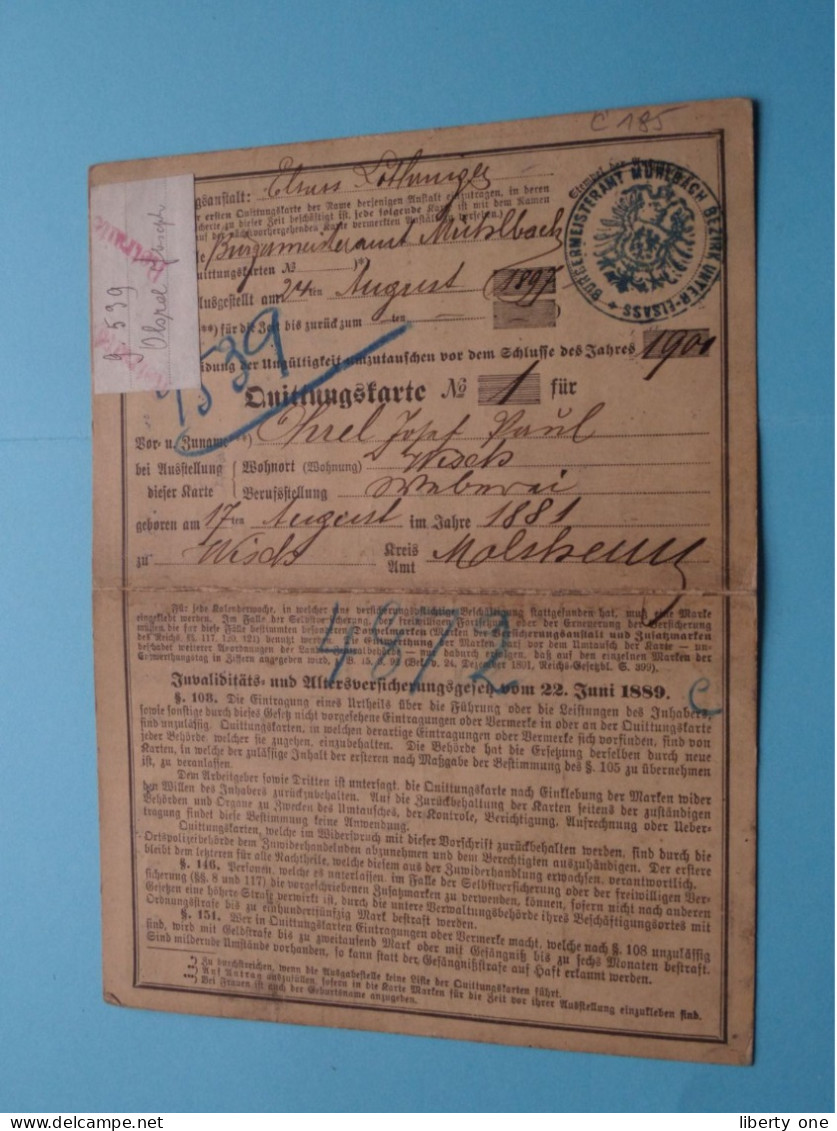 C 185
gsanstalt: Elsass Lothringen
er ersten Quittungskarte der Name derjenigen Anstalt einzutragen, in deren
cherte zu dieser Zeit beschäftigt ist, jede folgende Karte ist mit dem Namen
auf der vorhergehenden Karte vermerkten Anstalt zu versehen.)
BÜRGERMEISTERAMT MÜHLBACH BEZIRK UNTER-ELSASS
Burgermeisteramt Mühlbach
uittungskarten № )*)
Ausgestellt am 24 ten August 1897
**) für die Zeit bis zurück zum ten )
g 539
Joseph
9539
dung der Ungültigkeit umzutauschen vor dem Schlusse des Jahres 1901
Quittungskarte № 1 für
Vor- u. Zuname***) Ohrel Josef Paul
bei Ausstellung Wohnort (Wohnung) Wisch
dieser Karte Berufsstellung Weberei
geboren am 17 ten August im Jahre 1881
zu Wisch Kreis Amt Molsheim
Für jede Kalenderwoche, in welcher eine versicherungspflichtige Beschäftigung stattgefunden hat, muß eine Marke
eingeklebt werden. Im Falle der Selbstversicherung, der freiwilligen Fortsetzung oder der Erneuerung der Versicherung
müssen die für diese Fälle bestimmten besonderen Doppelmarken (Marken der Versicherungsanstalt und Zusatzmarken
des Reichs, §§. 117, 120, 121) benutzt werden. Die Entwerthung der Marken darf vor dem Umtausch der Karte — un-
beschadet weiterer Anordnungen der Landes-Zentralbehörden — nur dadurch erfolgen, daß auf den einzelnen Marken der
Entwerthungstag in Ziffern angegeben wird, z. B. 15. (Bek. v. 24. Dezember 1891, Reichs-Gesetzbl. S. 399).
4872
C
Invaliditäts- und Altersversicherungsgesetz vom 22. Juni 1889.
§. 108. Die Eintragung eines Urtheils über die Führung oder die Leistungen des Inhabers,
sowie sonstige durch dieses Gesetz nicht vorgesehene Eintragungen oder Vermerke in oder an der Quittungskarte
sind unzulässig. Quittungskarten, in welchen derartige Eintragungen oder Vermerke sich vorfinden, sind von
jeder Behörde, welcher sie zugehen, einzubehalten. Die Behörde hat die Ersetzung derselben durch neue
Karten, in welche der zulässige Inhalt der ersteren nach Maßgabe der Bestimmung des §. 105 zu übernehmen
ist, zu veranlassen.
Dem Arbeitgeber sowie Dritten ist untersagt, die Quittungskarte nach Einklebung der Marken wider
den Willen des Inhabers zurückzubehalten. Auf die Zurückbehaltung der Karten seitens der zuständigen
Behörden und Organe zu Zwecken des Umtausches, der Kontrole, Berichtigung, Aufrechnung oder Ueber-
tragung findet diese Bestimmung keine Anwendung.
Quittungskarten, welche im Widerspruch mit dieser Vorschrift zurückbehalten werden, sind durch die
Ortspolizeibehörde dem Zuwiderhandelnden abzunehmen und dem Berechtigten auszuhändigen. Der erstere
bleibt dem letzteren für alle Nachtheile, welche diesem aus der Zuwiderhandlung erwachsen, verantwortlich.
§. 146. Personen, welche es unterlassen, im Falle der Selbstversicherung oder der freiwilligen Ver-
sicherung (§§. 8 und 117) die vorgeschriebenen Zusatzmarken zu verwenden, können, sofern nicht nach anderen
Gesetzen eine höhere Strafe verwirkt ist, durch die untere Verwaltungsbehörde ihres Beschäftigungsortes mit
Ordnungsstrafe bis zu einhundertfünfzig Mark bestraft werden.
§. 151. Wer in Quittungskarten Eintragungen oder Vermerke macht, welche nach §. 108 unzulässig
sind, wird mit Geldstrafe bis zu zweitausend Mark oder mit Gefängniß bis zu sechs Monaten bestraft.
Sind mildernde Umstände vorhanden, so kann statt der Gefängnißstrafe auf Haft erkannt werden.
*) Zu durchstreichen, wenn die Ausgabestelle keine Liste der Quittungskarten führt.
**) Auf Antrag auszufüllen, sofern in die Karte Marken für die Zeit vor ihrer Ausstellung einzukleben sind.
***) Bei Frauen ist auch der Geburtsname anzugeben.
liberty one